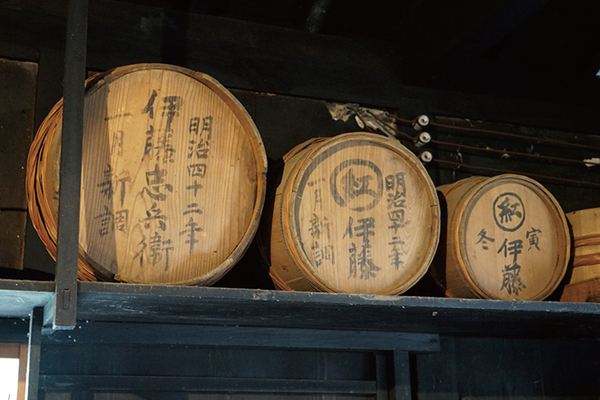 明治四十二年
伊藤忠兵衛
一月新調
明治四十二年
紅
伊藤
一月新調
寅
紅
伊藤
冬